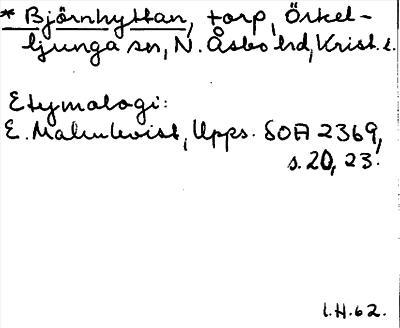 * Björnhyttan, torp, Örkel-
ljunga sn, N. Åsbo hd, Krist. l.
Etymologi:
E. Malmkvist, Upps. SOA 2369,
s. 20, 23.
I.H.62.